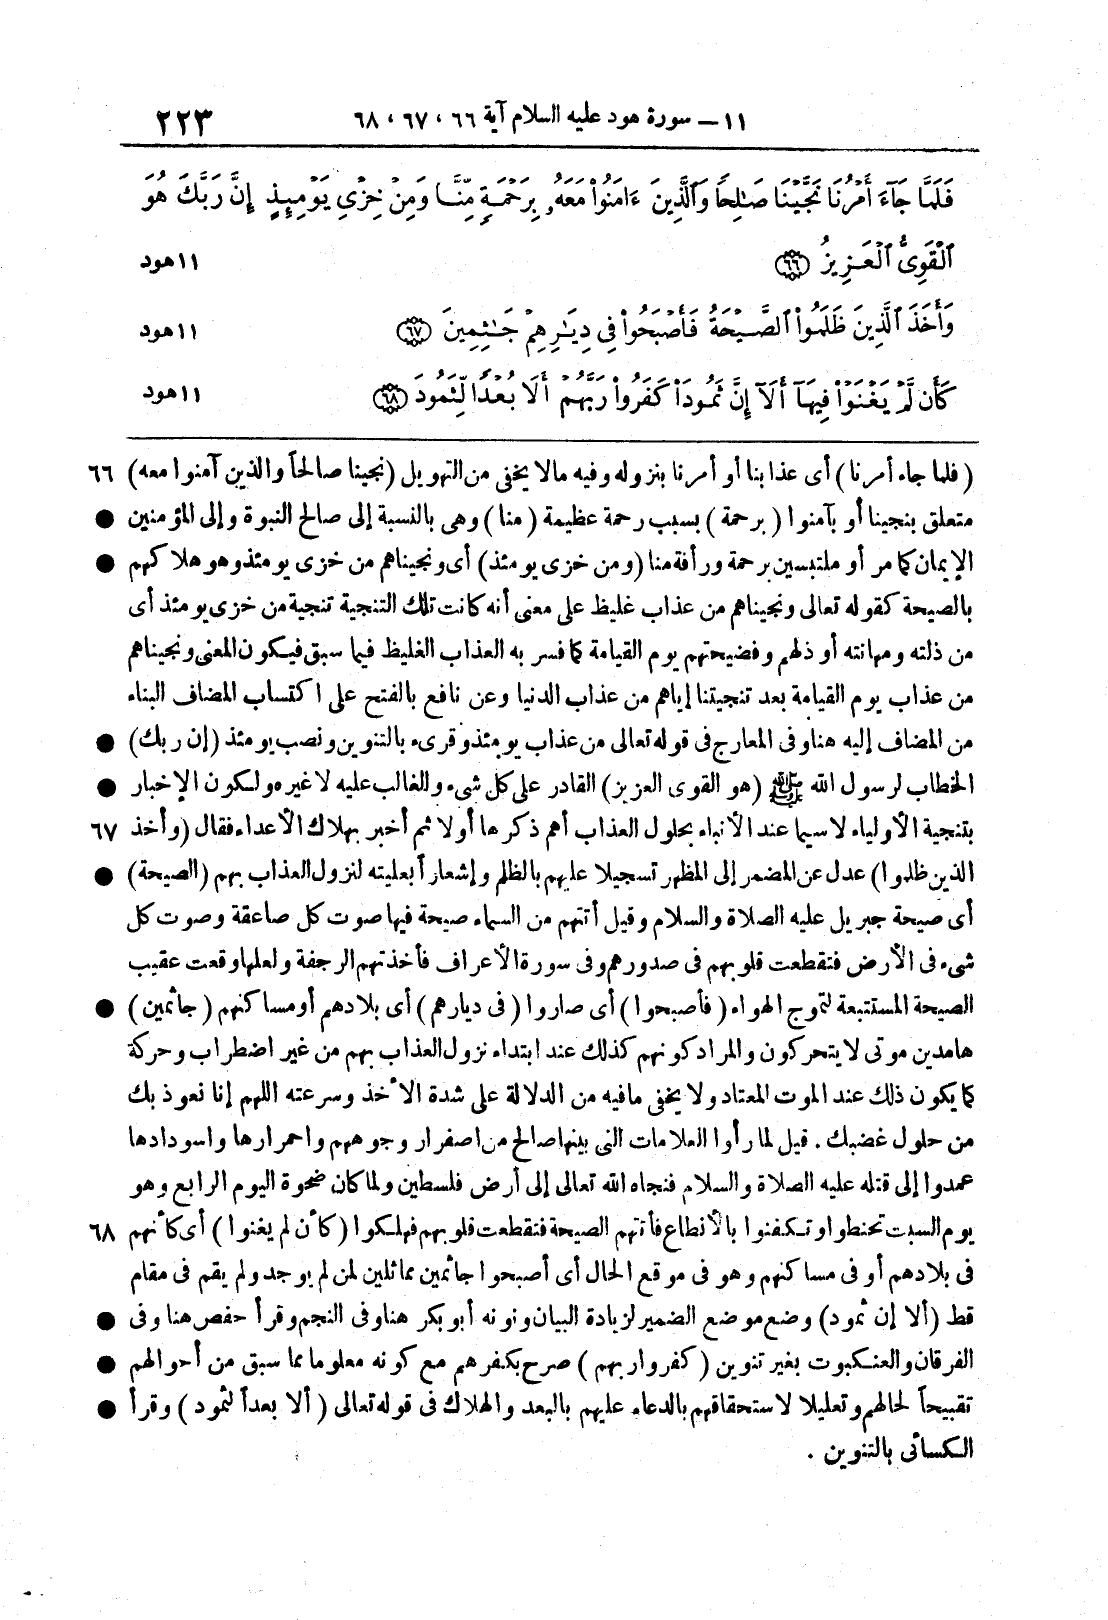 ١١ – سورة هود عليه السلام آية ٦٦ ، ٦٧ ، ٦٨ ٢٢٣
فَلَمَّا جَآءَ أَمْرُنَا نَجَّيْنَا صَٰلِحًا وَٱلَّذِينَ ءَامَنُوا۟ مَعَهُۥ بِرَحْمَةٍ مِّنَّا وَمِنْ خِزْىِ يَوْمِئِذٍ إِنَّ رَبَّكَ هُوَ
ٱلْقَوِىُّ ٱلْعَزِيزُ ﴿٦٦﴾ ١١ هود
وَأَخَذَ ٱلَّذِينَ ظَلَمُوا۟ ٱلصَّيْحَةُ فَأَصْبَحُوا۟ فِى دِيَٰرِهِمْ جَٰثِمِينَ ﴿٦٧﴾ ١١ هود
كَأَن لَّمْ يَغْنَوْا۟ فِيهَآ أَلَآ إِنَّ ثَمُودَا۟ كَفَرُوا۟ رَبَّهُمْ أَلَا بُعْدًا لِّثَمُودَ ﴿٦٨﴾ ١١ هود
(فلما جاء أمرنا) أى عذابنا أو أمرنا بنزوله وفيه مالا يخفى من التهويل (نجينا صالحاً والذين آمنوا معه) ٦٦
متعلق بنجينا أو بآمنوا (برحمة) بسبب رحمة عظيمة (منا) وهى بالنسبة إلى صالح النبوة وإلى المؤمنين ●
الإيمان كما مر أو ملتبسين برحمة ورأفة منا (ومن خزى يومئذ) أى ونجيناهم من خزى يومئذ وهو هلاكهم ●
بالصيحة كقوله تعالى ونجيناهم من عذاب غليظ على معنى أنه كانت تلك التنجية تنجية من خزى يومئذ أى
من ذلته ومهانته أو ذلهم وفضيحتهم يوم القيامة كما فسر به العذاب الغليظ فيما سبق فيكون المعنى ونجيناهم
من عذاب يوم القيامة بعد تنجيتنا إياهم من عذاب الدنيا وعن نافع بالفتح على اكتساب المضاف البناء
من المضاف إليه هنا وفى المعارج فى قوله تعالى من عذاب يومئذ وقرىء بالتنوين ونصب يومئذ (إن ربك) ●
الخطاب لرسول الله ﷺ (هو القوى العزيز) القادر على كل شىء والغالب عليه لا غيره ولكون الإخبار ●
بتنجية الأولياء لا سيما عند الأنباء بحلول العذاب أهم ذكرها أولا ثم أخبر بهلاك الأعداء فقال (وأخذ ٦٧
الذين ظلموا) عدل عن المضمر إلى المظهر تسجيلا عليهم بالظلم وإشعاراً بعليته لنزول العذاب بهم (الصيحة) ●
أى صيحة جبريل عليه الصلاة والسلام وقيل أتتهم من السماء صيحة فيها صوت كل صاعقة وصوت كل
شىء فى الأرض فتقطعت قلوبهم فى صدورهم وفى سورة الأعراف فأخذتهم الرجفة ولعلها وقعت عقيب
الصيحة المستتبعة لتموج الهواء (فأصبحوا) أى صاروا (فى ديارهم) أى بلادهم أو مساكنهم (جاثمين) ●
هامدين موتى لا يتحركون والمراد كونهم كذلك عند ابتداء نزول العذاب بهم من غير اضطراب وحركة
كما يكون ذلك عند الموت المعتاد ولا يخفى مافيه من الدلالة على شدة الأخذ وسرعته اللهم إنا نعوذ بك
من حلول غضبك . قيل لما رأوا العلامات التى بينها صالح من اصفرار وجوههم واحمرارها واسودادها
عمدوا إلى قتله عليه الصلاة والسلام فنجاه الله تعالى إلى أرض فلسطين ولما كان ضحوة اليوم الرابع وهو
يوم السبت تحنطوا وتكفنوا بالأنطاع فأتتهم الصيحة فتقطعت قلوبهم فهلكوا (كأن لم يغنوا) أى كأنهم ٦٨
فى بلادهم أو فى مساكنهم وهو فى موقع الحال أى أصبحوا جاثمين مماثلين لمن لم يوجد ولم يقم فى مقام
قط (ألا إن ثمود) وضع موضع الضمير لزيادة البيان ونونه أبو بكر هنا وفى النجم وقرأ حفص هنا وفى ●
الفرقان والعنكبوت بغير تنوين (كفروا ربهم) صرح بكفرهم مع كونه معلوما مما سبق من أحوالهم ●
تقبيحاً لحالهم وتعليلا لاستحقاقهم بالدعاء عليهم بالبعد والهلاك فى قوله تعالى (ألا بعداً لثمود) وقرأ ●
الكسائى بالتنوين .